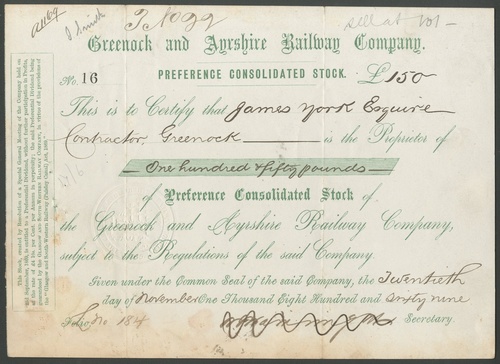 sell at 101-
Greenock and Ayrshire Railway Company.
No. 16 PREFERENCE CONSOLIDATED STOCK. £150
This is to Certify that James York Esquire
Contractor, Greenock is the Proprietor of
One hundred & fifty pounds
of Preference Consolidated Stock of
the Greenock and Ayrshire Railway Company,
subject to the Regulations of the said Company.
Given under the Common Seal of the said Company, the Twentieth
day of November One Thousand Eight Hundred and sixty nine
Folio No 184 Secretary
This Stock, created by Resolution of a Special General Meeting of the Company held on
September, 1869, is entitled to a Preferential Dividend, without further participation in Profits,
of the rate of per Cent. per Annum in perpetuity; the said Preferential Dividend being
guaranteed by the GLASGOW AND SOUTH-WESTERN RAILWAY COMPANY, in virtue of the provisions of
the "Glasgow and South-Western Railway (Paisley Canal) Act, 1869."